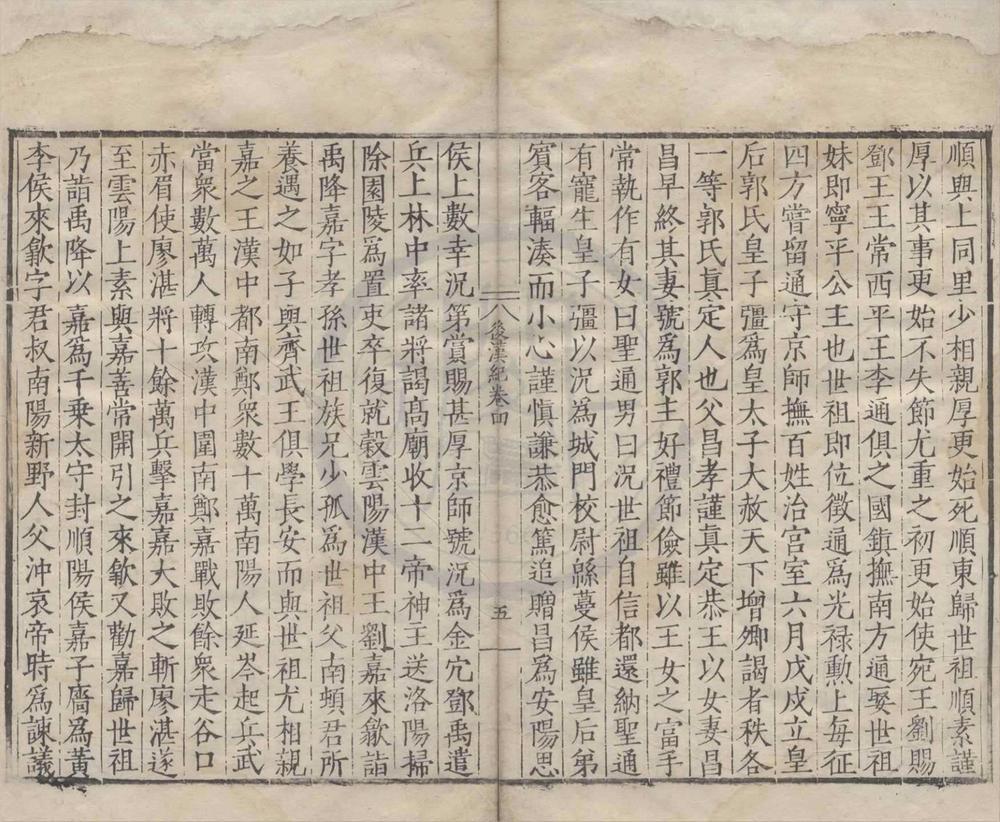 順與上同里少相親厚更始死順東歸世祖順素謹
厚以其事更始不失節尤重之初更始使宛王劉賜
鄧王王常西平王李通俱之國鎮撫南方通娶世祖
妹即寧平公主也世祖即位徵通爲光祿勲上每征
四方嘗留通守京師撫百姓治宮室六月戊戌立皇
后郭氏皇子彊爲皇太子大赦天下增卿謁者秩各
一等郭氏眞定人也父昌孝謹真定恭王以女妻昌
昌早終其妻號爲郭主好禮節儉雖以王女之富手
常執作有女曰聖通男曰況世祖自信都還納聖通
有寵生皇子彊以況爲城門校尉緜蔓侯雖皇后弟
賓客輻湊而小心謹慎謙恭愈篤追贈昌爲安陽思
後漢紀卷四
五
侯上數幸況第賞賜甚厚京師號況爲金穴鄧禹遣
兵上林中率諸將謁髙廟收十二帝神主送洛陽掃
除園陵爲置吏卒復就糓雲陽漢中王劉嘉來歙詣
禹降嘉字孝孫世祖族兄少孤爲世祖父南頓君所
養遇之如子與齊武王俱學長安而與世祖尤相親
嘉之王漢中都南鄭衆數十萬南陽人延岑起兵武
當衆數萬人轉攻漢中圍南鄭嘉戰敗餘衆走谷口
赤眉使廖湛將十餘萬兵擊嘉嘉大敗之斬廖湛遂
至雲陽上素與嘉善常開引之來歙又勸嘉歸世祖
乃詣禹降以嘉爲千乗太守封順陽侯嘉子廧爲黃
李侯來歙字君叔南陽新野人父沖哀帝時爲諫議